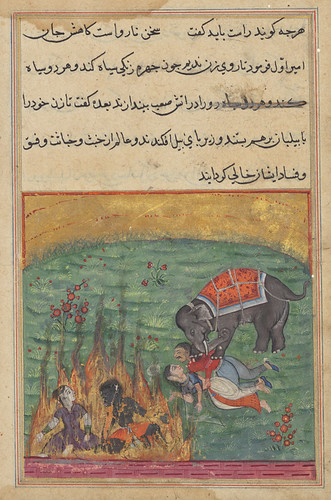 هرچه کویند راست باید کفت سخن ناراست کاهش جان
امیر اول فرمود تا روی زن ندیر چون چهره زنکی سیاه کند و هر دو سیاه
را در آتش صعب بیندازند بعده کفت تا زن خود را
با پیلبان بر هم بستند و زیر پای پیل افکندند و عالم از خبث و خیانت و فسق
و فساد ایشان خالی کردانید